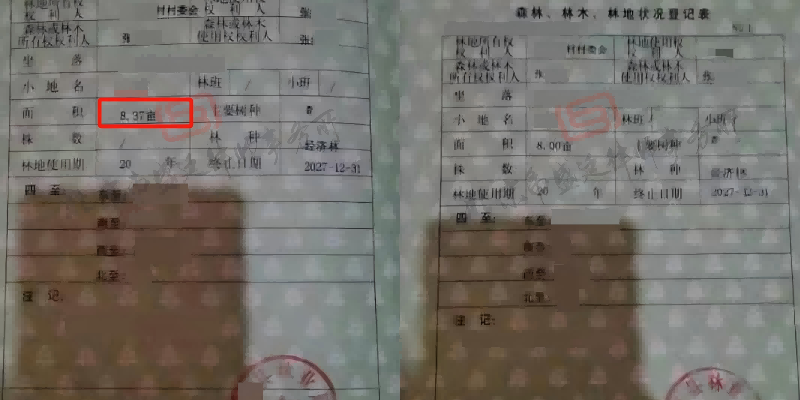 林地所有权
权利人
村村委会
张
森林或林木
所有权权利人
张
森林或林木
使用权权利人
张
坐 落
小 地 名
林班
小班
面 积
8.37亩
主要树种
株 数
林 种
经济林
林地使用期
20 年
终止日期
2027-12-31
四 至:
东至:
南至:
西至:
北至:
注 记:
林业
森林、林木、林地状况登记表
No 1
林地所有权
权利人
村村委会
林地使用权
权利人
森林或林木
所有权权利人
张
森林或林木
使用权权利人
张
坐 落
小 地 名
林班
小班
面 积
8.00亩
主要树种
株 数
林 种
经济林
林地使用期
20 年
终止日期
2027-12-31
四 至:
东至:
南至:
西至:
北至:
注 记:
县林业